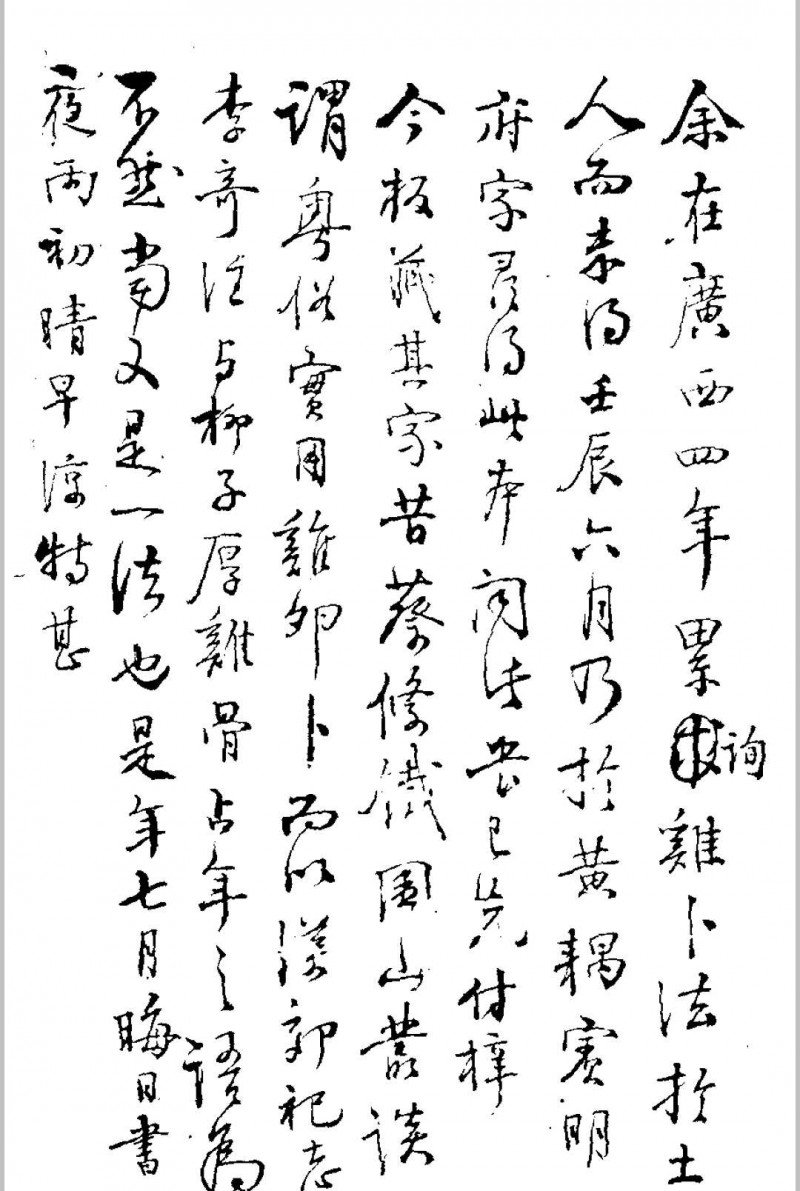 余在廣西四年累詢雞卜法於土
人而未得壬辰六月乃於黃耦賓明
府得此本法已先付梓
今板藏其家昔蔡絛鐵圍山叢談
謂粵俗實用雞卵卜而以漢郊祀志
李奇注与柳子厚雞骨占年之語為
不然當又是一法也是年七月晦日書
夜雨初晴早涼特甚